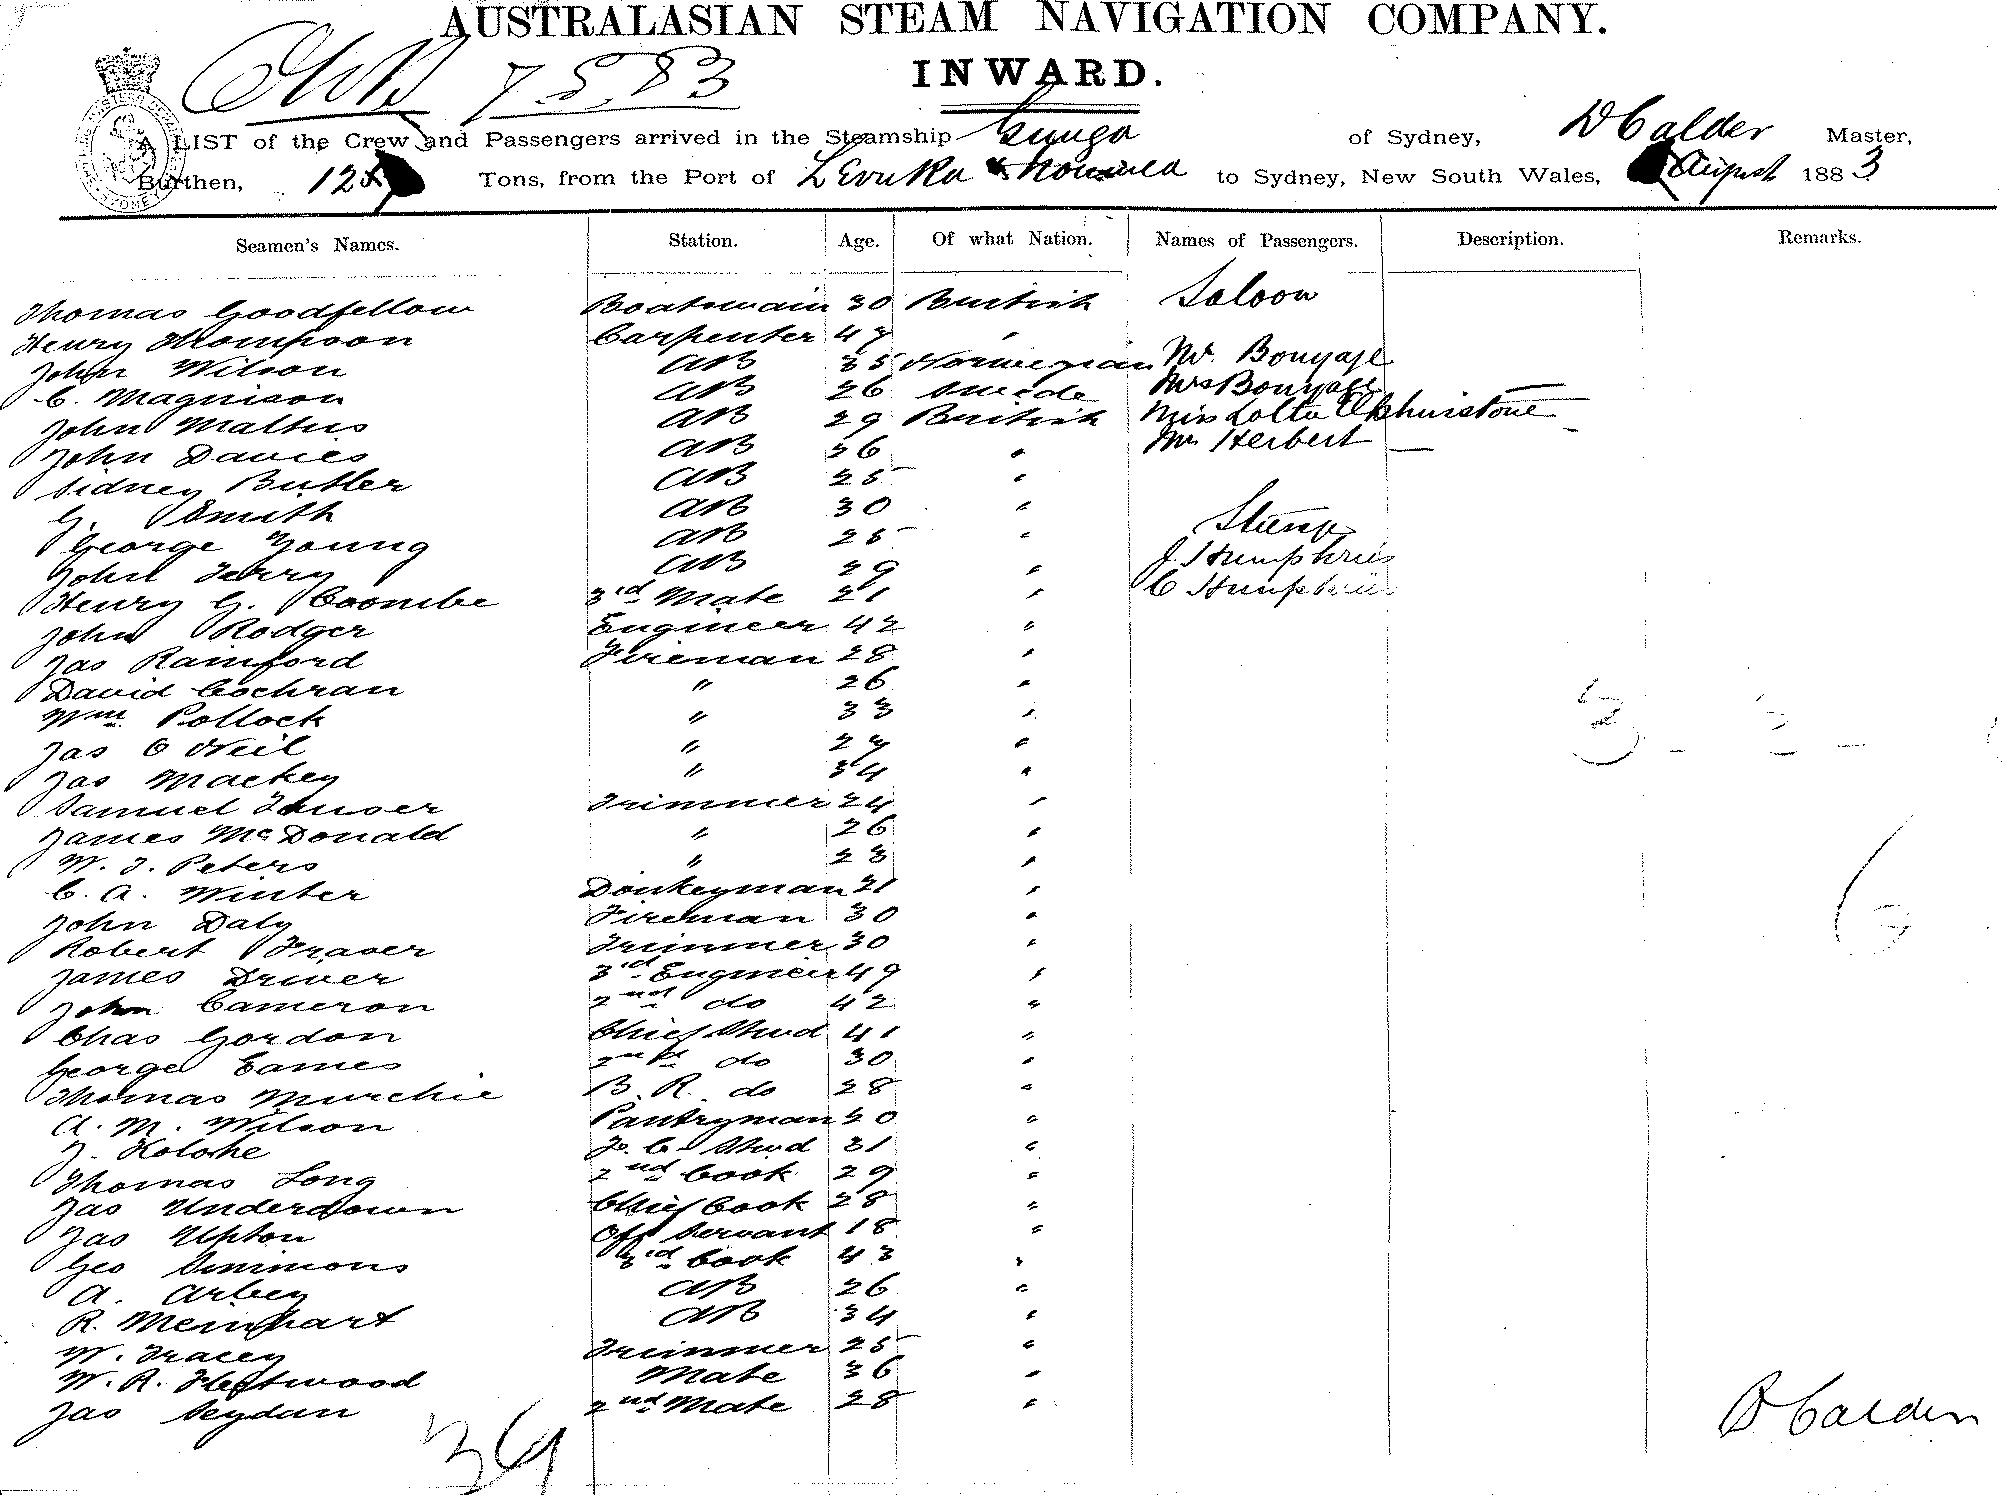 AUSTRALASIAN STEAM NAVIGATION COMPANY.
7.8.83
INWARD.
A LIST of the Crew and Passengers arrived in the Steamship Gunga of Sydney, D Calder Master,
Burthen, Tons, from the Port of Levuka & Noumea to Sydney, New South Wales, August 1883
Seamen's Names. Station. Age. Of what Nation. Names of Passengers. Description. Remarks.
Thomas Goodfellow Boatswain 30 British Saloon
Henry Thompson Carpenter 47 "
John Wilson AB 35 Norwegian Mr. Bonyage
C. Magnison AB 26 Swede Mrs Bonyage
John Mathis AB 29 British Miss Lotta
John Davies AB 36 " Mr Herbert
Sidney Butler AB 25 "
G. Smith AB 30 "
George Young AB 25 " J. Humphries
John Terry AB 29 " C Humphries
Henry G. Coombe 3rd Mate 21 "
John Rodger Engineer 42 "
Jas Rainford Fireman 28 "
David Cochran " 26 "
Wm. Pollock " 33 "
Jas O Neil " 27 "
Jas Mackey " 34 "
Samuel Trimmer 24 "
James McDonald " 26 "
W. J. Peters " 23 "
C. A. Winter Donkeyman 21 "
John Daly Fireman 30 "
Robert Fraser Trimmer 30 "
James Driver 3rd Engineer 49 "
John Cameron 2nd do 42 "
Chas Gordon Chief Stwd 41 "
George Eames 2nd do 30 "
Thomas Murchie B. R. do 28 "
A. M. Wilson Pantryman 20 "
J. F. C. Stwd 31 "
Thomas Long 2nd Cook 29 "
Jas Underdown Chief Cook 28 "
Jas Upton Off Servant 18 "
Geo Simmons 3rd Cook 43 "
A. Arbey AB 26 "
R. Meinhart AB 34 "
W. Tracey Trimmer 25 "
W. R. Fleetwood Mate 36 "
Jas Seydan 2nd Mate 28 "
D Calder
39